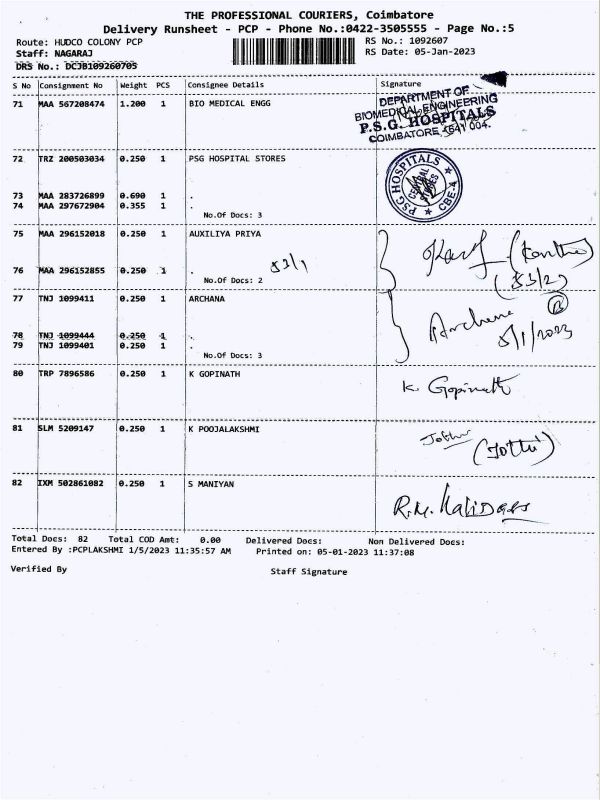 THE PROFESSIONAL COURIERS, Coimbatore
Delivery Runsheet - PCP - Phone No.:0422-3505555 - Page No.:5
Route: HUDCO COLONY PCP RS No.: 1092607
Staff: NAGARAJ RS Date: 05-Jan-2023
DRS No.: DCJB109260705
S No Consignment No Weight PCS Consignee Details Signature
71 MAA 567208474 1.200 1 BIO MEDICAL ENGG
DEPARTMENT OF
BIOMEDICAL ENGINEERING
P.S.G. HOSPITALS
COIMBATORE - 641 004.
72 TRZ 200503034 0.250 1 PSG HOSPITAL STORES
PSG HOSPITALS
CENTRAL
STORES
CBE-4
73 MAA 283726899 0.690 1 .
74 MAA 297672904 0.355 1 .
No.Of Docs: 3
75 MAA 296152018 0.250 1 AUXILIYA PRIYA
76 MAA 296152855 0.250 1 .
No.Of Docs: 2
53/1
(53/2)
77 TNJ 1099411 0.250 1 ARCHANA
Archana
5/1/2023
78 TNJ 1099444 0.250 1 .
79 TNJ 1099401 0.250 1 .
No.Of Docs: 3
80 TRP 7896586 0.250 1 K GOPINATH
K. Gopinath
81 SLM 5209147 0.250 1 K POOJALAKSHMI
(Jothi)
82 IXM 502861082 0.250 1 S MANIYAN
R.M. Kalidass
Total Docs: 82 Total COD Amt: 0.00 Delivered Docs: Non Delivered Docs:
Entered By :PCPLAKSHMI 1/5/2023 11:35:57 AM Printed on: 05-01-2023 11:37:08
Verified By Staff Signature